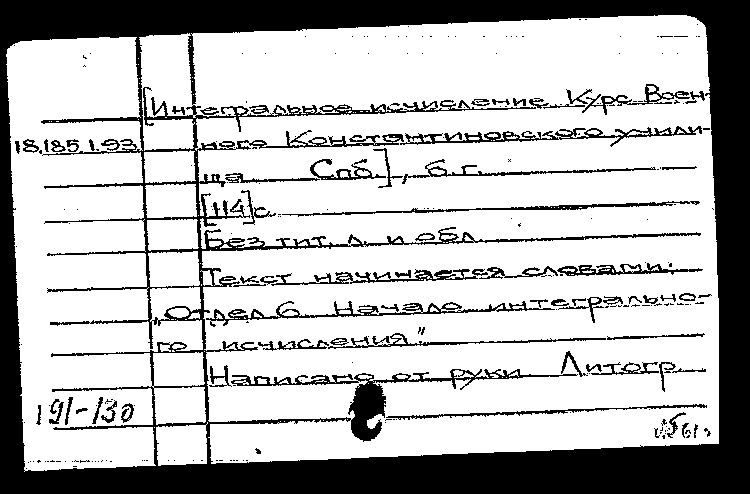 [Интегральное исчисление Курс Воен-
18.185.1.93 ного Константиновского учили-
ща Спб.], б.г.
[114]с.
Без тит. л. и обл.
Текст начинается словами:
„Отдел 6 Начало интегрально-
го исчисления"
Написано от руки Литогр.
191-130
61г